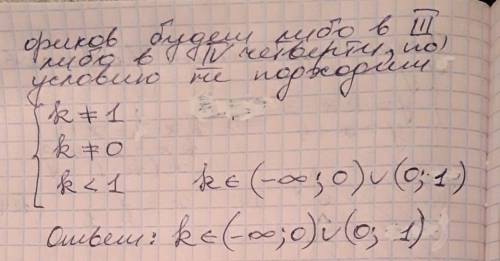 фиков будет либо в III
либо в IV четверти, по
условию не подходит
k ≠ 1
k ≠ 0
k < 1 k ∈ (-∞; 0) ∪ (0; 1)
Ответ: k ∈ (-∞; 0) ∪ (0; 1)